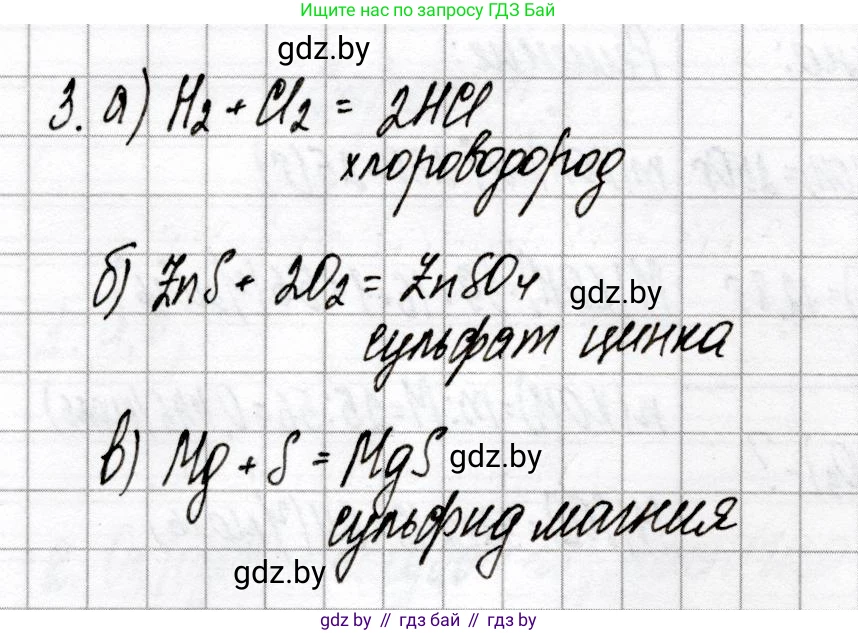 Ищите нас по запросу ГДЗ Бай
gdz.by
3. а) H₂ + Cl₂ = 2HCl
хлороводород
б) ZnS + 2O₂ = ZnSO₄
gdz.by
сульфат цинка
в) Mg + S = MgS
gdz.by
сульфид магния
gdz.by
gdz.by // гдз бай // gdz.by